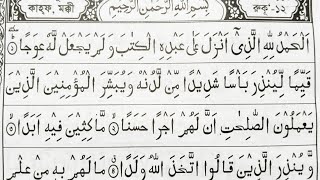 কাহফ, মক্কী بِسْمِ اللهِ الرَّحْمٰنِ الرَّحِيْمِ রুকু-১২
اَلْحَمْدُ لِلّٰهِ الَّذِيْٓ اَنْزَلَ عَلٰى عَبْدِهِ الْكِتٰبَ وَلَمْ يَجْعَلْ لَّهٗ عِوَجًا ۜ
قَيِّمًا لِّيُنْذِرَ بَاْسًا شَدِيْدًا مِّنْ لَّدُنْهُ وَيُبَشِّرَ الْمُؤْمِنِيْنَ الَّذِيْنَ
يَعْمَلُوْنَ الصّٰلِحٰتِ اَنَّ لَهُمْ اَجْرًا حَسَنًا ۝ مَّاكِثِيْنَ فِيْهِ اَبَدًا ۝
وَّيُنْذِرَ الَّذِيْنَ قَالُوا اتَّخَذَ اللّٰهُ وَلَدًا ۝ مَا لَهُمْ بِهٖ مِنْ عِلْمٍ